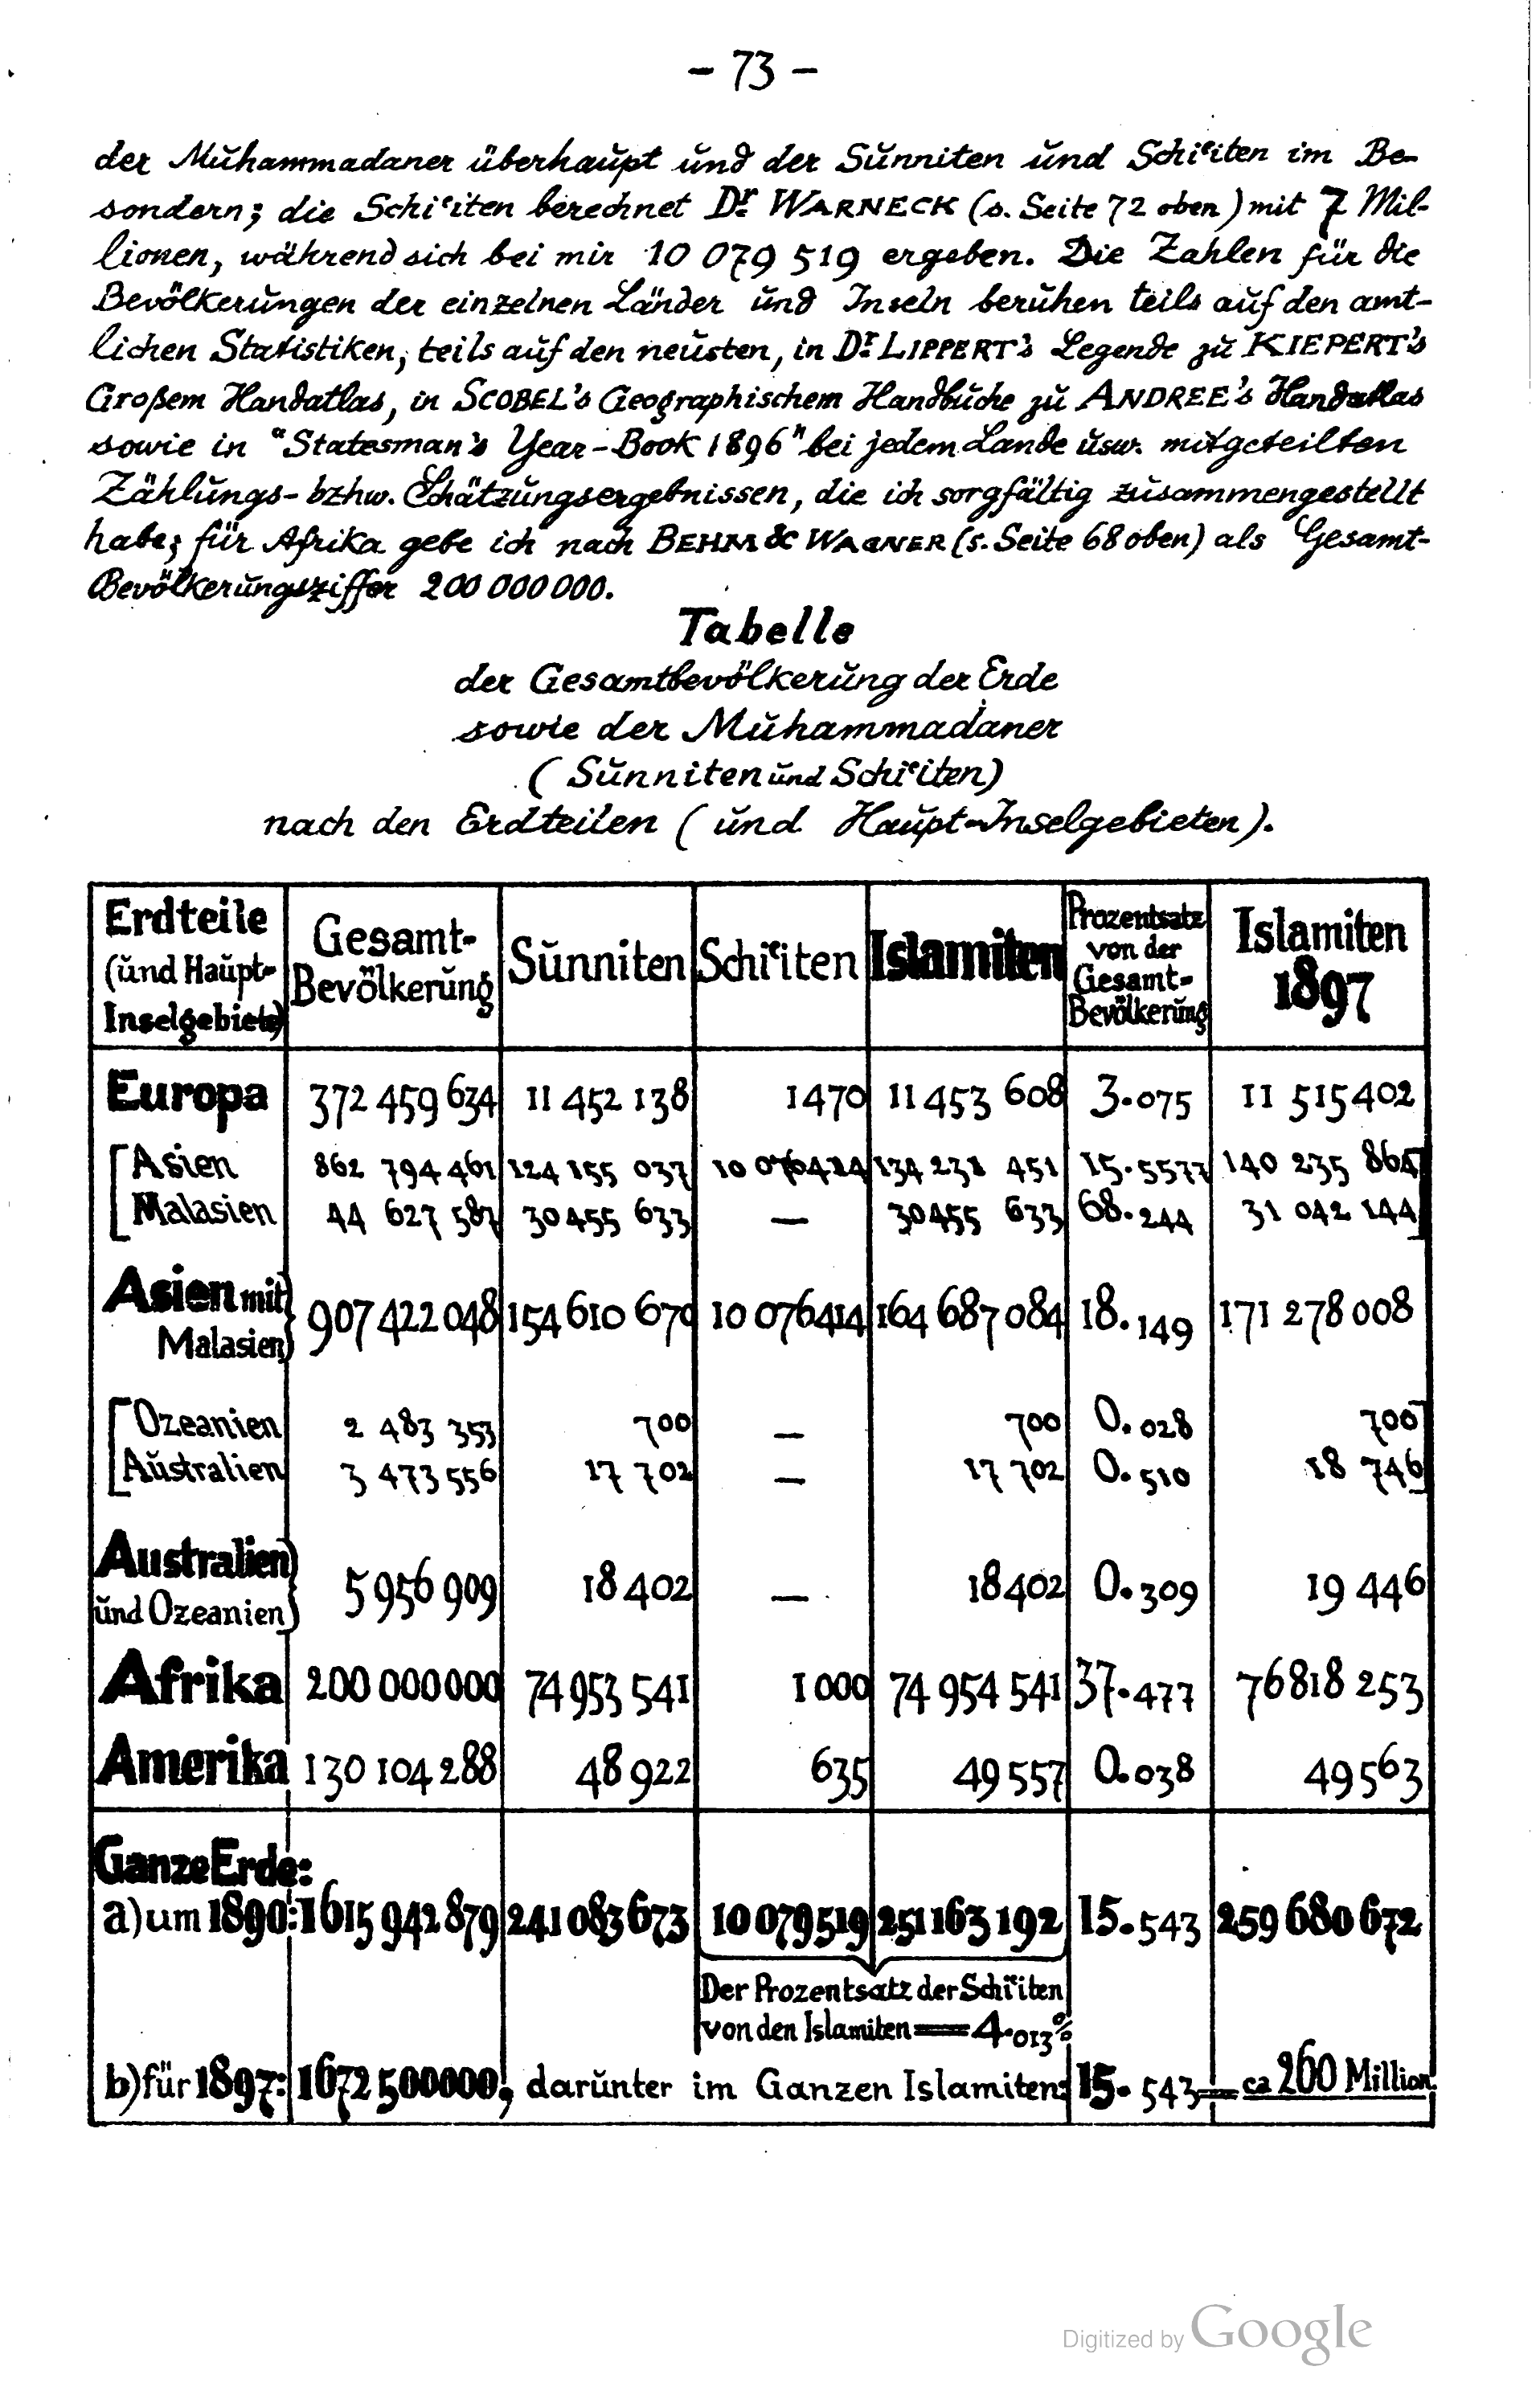 – 73 –
der Mŭhammadaner überhaŭpt ŭnd der Sŭnniten ŭnd Schiʿiten im Be-
sondern; die Schiʿiten berechnet Dr. WARNECK (s. Seite 72 oben) mit 7 Mil-
lionen, während sich bei mir 10 079 519 ergeben. Die Zahlen für die
Bevölkerŭngen der einzelnen Länder ŭnd Inseln berŭhen teils aŭf den amt-
lichen Statistiken, teils aŭf den neŭsten, in Dr. LIPPERT's Legende zŭ KIEPERT's
Großem Handatlas, in SCOBEL's Geographischem Handbŭche zŭ ANDREE's Handatlas
sowie in "Statesman's Year-Book 1896" bei jedem Lande ŭsw. mitgeteilten
Zählŭngs- bzhw. Schätzŭngsergebnissen, die ich sorgfältig zŭsammengestellt
habe; für Afrika gebe ich nach BEHM & WAGNER (s. Seite 68 oben) als Gesamt-
Bevölkerŭngsziffer 200 000 000.
Tabelle
der Gesamtbevölkerŭng der Erde
sowie der Mŭhammadaner
(Sŭnniten ŭnd Schiʿiten)
nach den Erdteilen (ŭnd Haŭpt-Inselgebieten).
Erdteile (ŭnd Haŭpt-Inselgebiete) Gesamt-Bevölkerŭng Sŭnniten Schiʿiten Islamiten Prozentsatz von der Gesamt-Bevölkerŭng Islamiten 1897
Europa 372 459 634 11 452 138 1470 11 453 608 3.075 11 515 402
[Asien 862 794 461 124 155 037 10 076 414 134 231 451 15.5577 140 235 864
Malasien 44 627 587 30 455 633 — 30 455 633 68.244 31 042 144]
Asien mit Malasien) 907 422 048 154 610 670 10 076 414 164 687 084 18.149 171 278 008
[Ozeanien 2 483 353 700 — 700 0.028 700
Aŭstralien 3 473 556 17 702 — 17 702 0.510 18 746]
Australien) ŭnd Ozeanien) 5 956 909 18 402 — 18 402 0.309 19 446
Afrika 200 000 000 74 953 541 1 000 74 954 541 37.477 76 818 253
Amerika 130 104 288 48 922 635 49 557 0.038 49 563
Ganze Erde:
a) um 1890: 1 615 942 879 241 083 673 10 079 519 251 163 192 15.543 259 680 672
Der Prozentsatz der Schiʿiten
von den Islamiten = 4.013 %
b) für 1897: 1 672 500 000, darŭnter im Ganzen Islamiten: 15.543 = ca 260 Million.
Digitized by Google